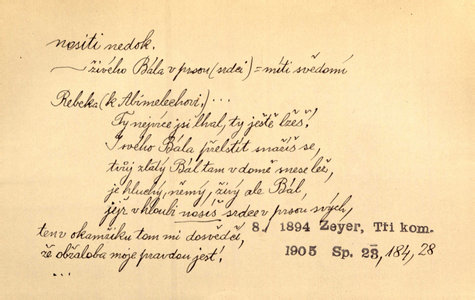 nositi nedok.
živého Bála v prsou (srdci) = míti svědomí
Rebeka (k Abimelechovi.) ...
Ty nejvíce jsi lhal, ty ještě lžeš!
I svého Bála přelstít snažíš se,
tvůj zlatý Bál tam v domě snese lež,
je hluchý, němý, živý ale Bál,
jejž v hloubi nosíš srdce v prsou svých,
ten v okamžiku tom mi dosvědč, 8. 1894 Zeyer, Tři kom.
že obžaloba moje pravdou jest! 1905 Sp. 23, 184, 28
...